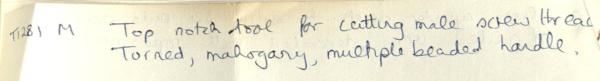 T1281 M Top notch tool for cutting male screw threac
Torned, mahogany, multiple beaded handle.